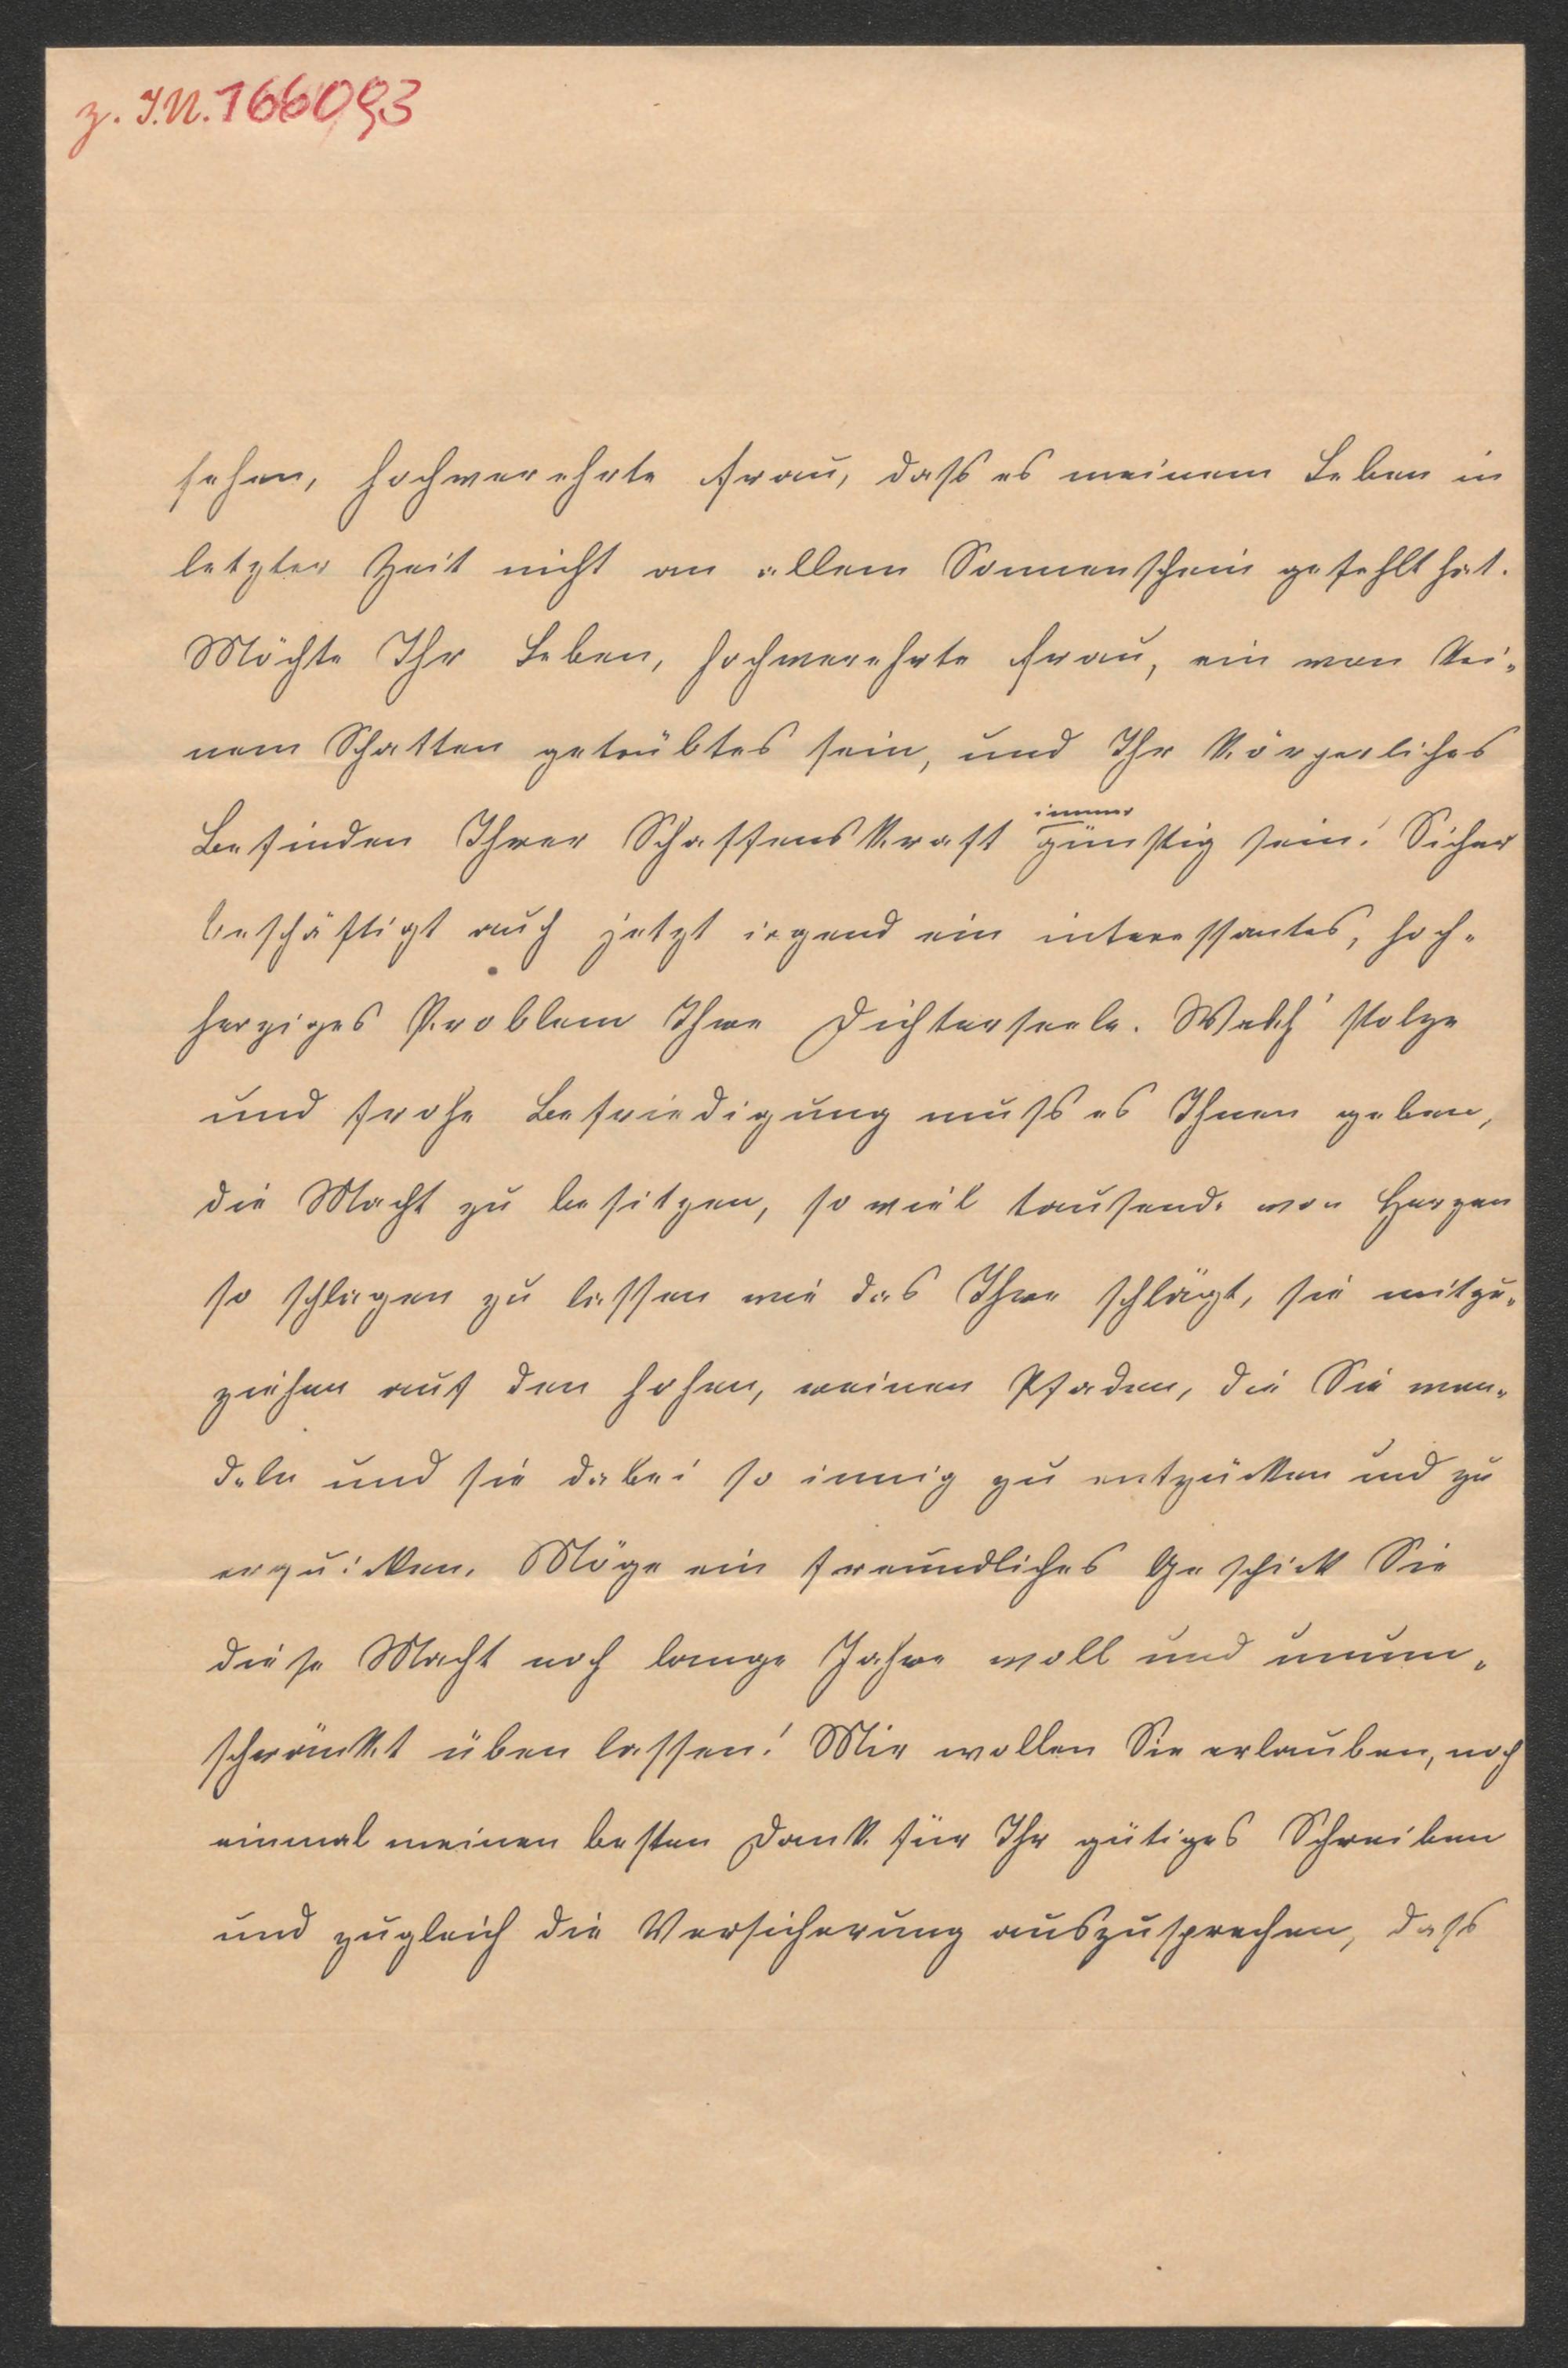 z. I.N. 166093
sehen, hochverehrte Frau, dass es meinem Leben in
letzter Zeit nicht an allem Sonnenschein gefehlt hat.
Möchte Ihr Leben, hochverehrte Frau, ein von kei-
nem Schatten getrübtes sein, und Ihr körperliches
immer
Befinden Ihrer Schaffenskraft günstig sein! Sicher
beschäftigt auch jetzt irgend ein interessantes, hoch-
herziges Problem Ihre Dichterseele. Welch' stolze
und frohe Befriedigung muss es Ihnen geben,
die Macht zu besitzen, so viel tausende von Herzen
so schlagen zu lassen wie das Ihre schlägt, sie mitzu-
ziehen auf den hohen, reinen Pfaden, die Sie wan-
deln und sie dabei so innig zu entzücken und zu
erquicken. Möge ein freundliches Geschick Sie
diese Macht noch lange Jahre voll und unum-
schränkt üben lassen! Mir wollen Sie erlauben, noch
einmal meinen besten Dank für Ihr gütiges Schreiben
und zugleich die Versicherung auszusprechen, dass